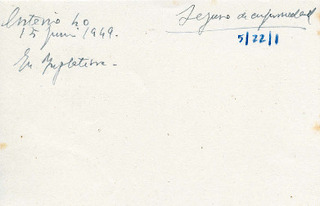 Criterio 40
15 juni 1949.
Seguro de enfermedad
5/22/1
En Inglaterra.-